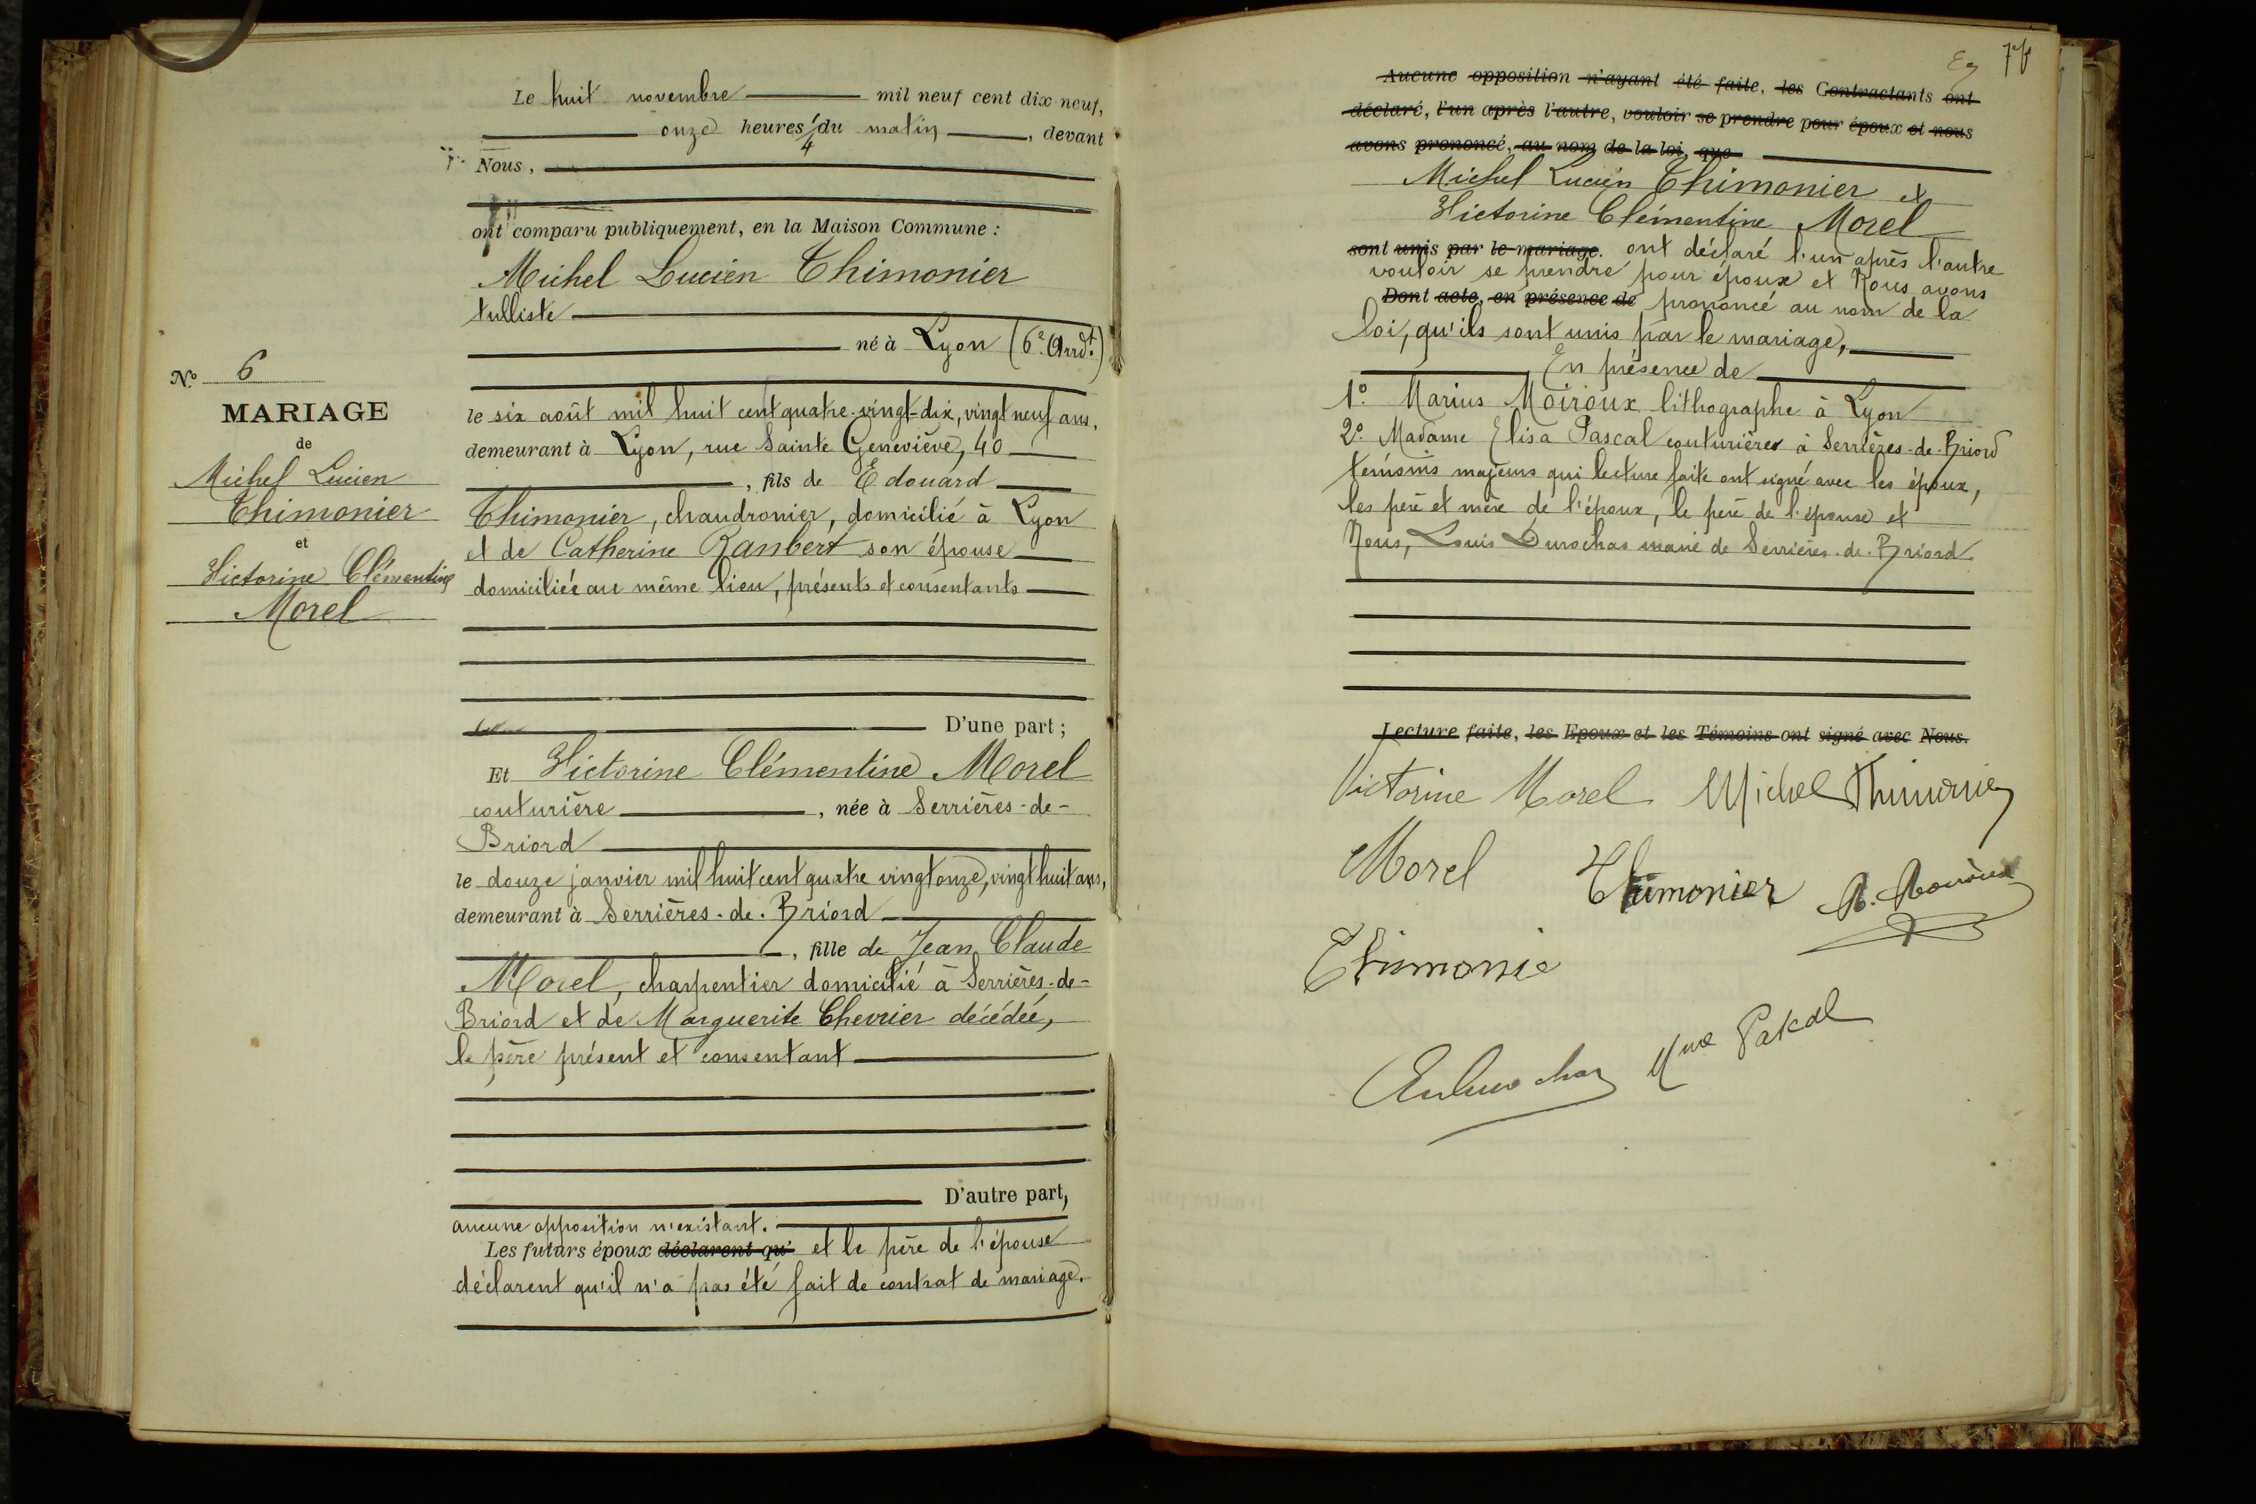 N° 6
MARIAGE
de
Michel Lucien
Thimonier
et
Victorine Clémentine
Morel
Le huit novembre mil neuf cent dix neuf,
onze heures 1/4 du matin, devant
Nous,
ont comparu publiquement, en la Maison Commune :
Michel Lucien Thimonier
tulliste
né à Lyon (6e Arrdt.)
le six août mil huit cent quatre-vingt-dix, vingt neuf ans,
demeurant à Lyon, rue Sainte Geneviève, 40
, fils de Edouard
Thimonier, chaudronier, domicilié à Lyon
et de Catherine Rambert son épouse
domiciliée au même lieu, présents et consentants
D'une part ;
Et Victorine Clémentine Morel
couturière, née à Serrières-de-
Briord
le douze janvier mil huit cent quatre vingt onze, vingt huit ans,
demeurant à Serrières-de-Briord
, fille de Jean Claude
Morel, charpentier domicilié à Serrières-de-
Briord et de Marguerite Chevrier décédée,
le père présent et consentant
D'autre part,
aucune opposition n'existant.
Les futurs époux déclarent qu' et le père de l'épouse
déclarent qu'il n'a pas été fait de contrat de mariage.
76
Aucune opposition n'ayant été faite, les Contractants ont
déclaré, l'un après l'autre, vouloir se prendre pour époux et nous
avons prononcé, au nom de la loi, que
Michel Lucien Thimonier et
Victorine Clémentine Morel
sont unis par le mariage. ont déclaré l'un après l'autre
vouloir se prendre pour époux et Nous avons
Dont acte, en présence de prononcé au nom de la
loi, qu'ils sont unis par le mariage,
En présence de
1° Marius Moiroux lithographe à Lyon
2° Madame Elisa Pascal couturière à Serrières-de-Briord
témoins majeurs qui lecture faite ont signé avec les époux,
les père et mère de l'époux, le père de l'épouse et
Nous, Louis Durochas maire de Serrières-de-Briord
Lecture faite, les Epoux et les Témoins ont signé avec Nous.
Victorine Morel Michel Thimonier
Morel Thimonier M. Moiroux
Thimonie
Durochas Mme Paskal